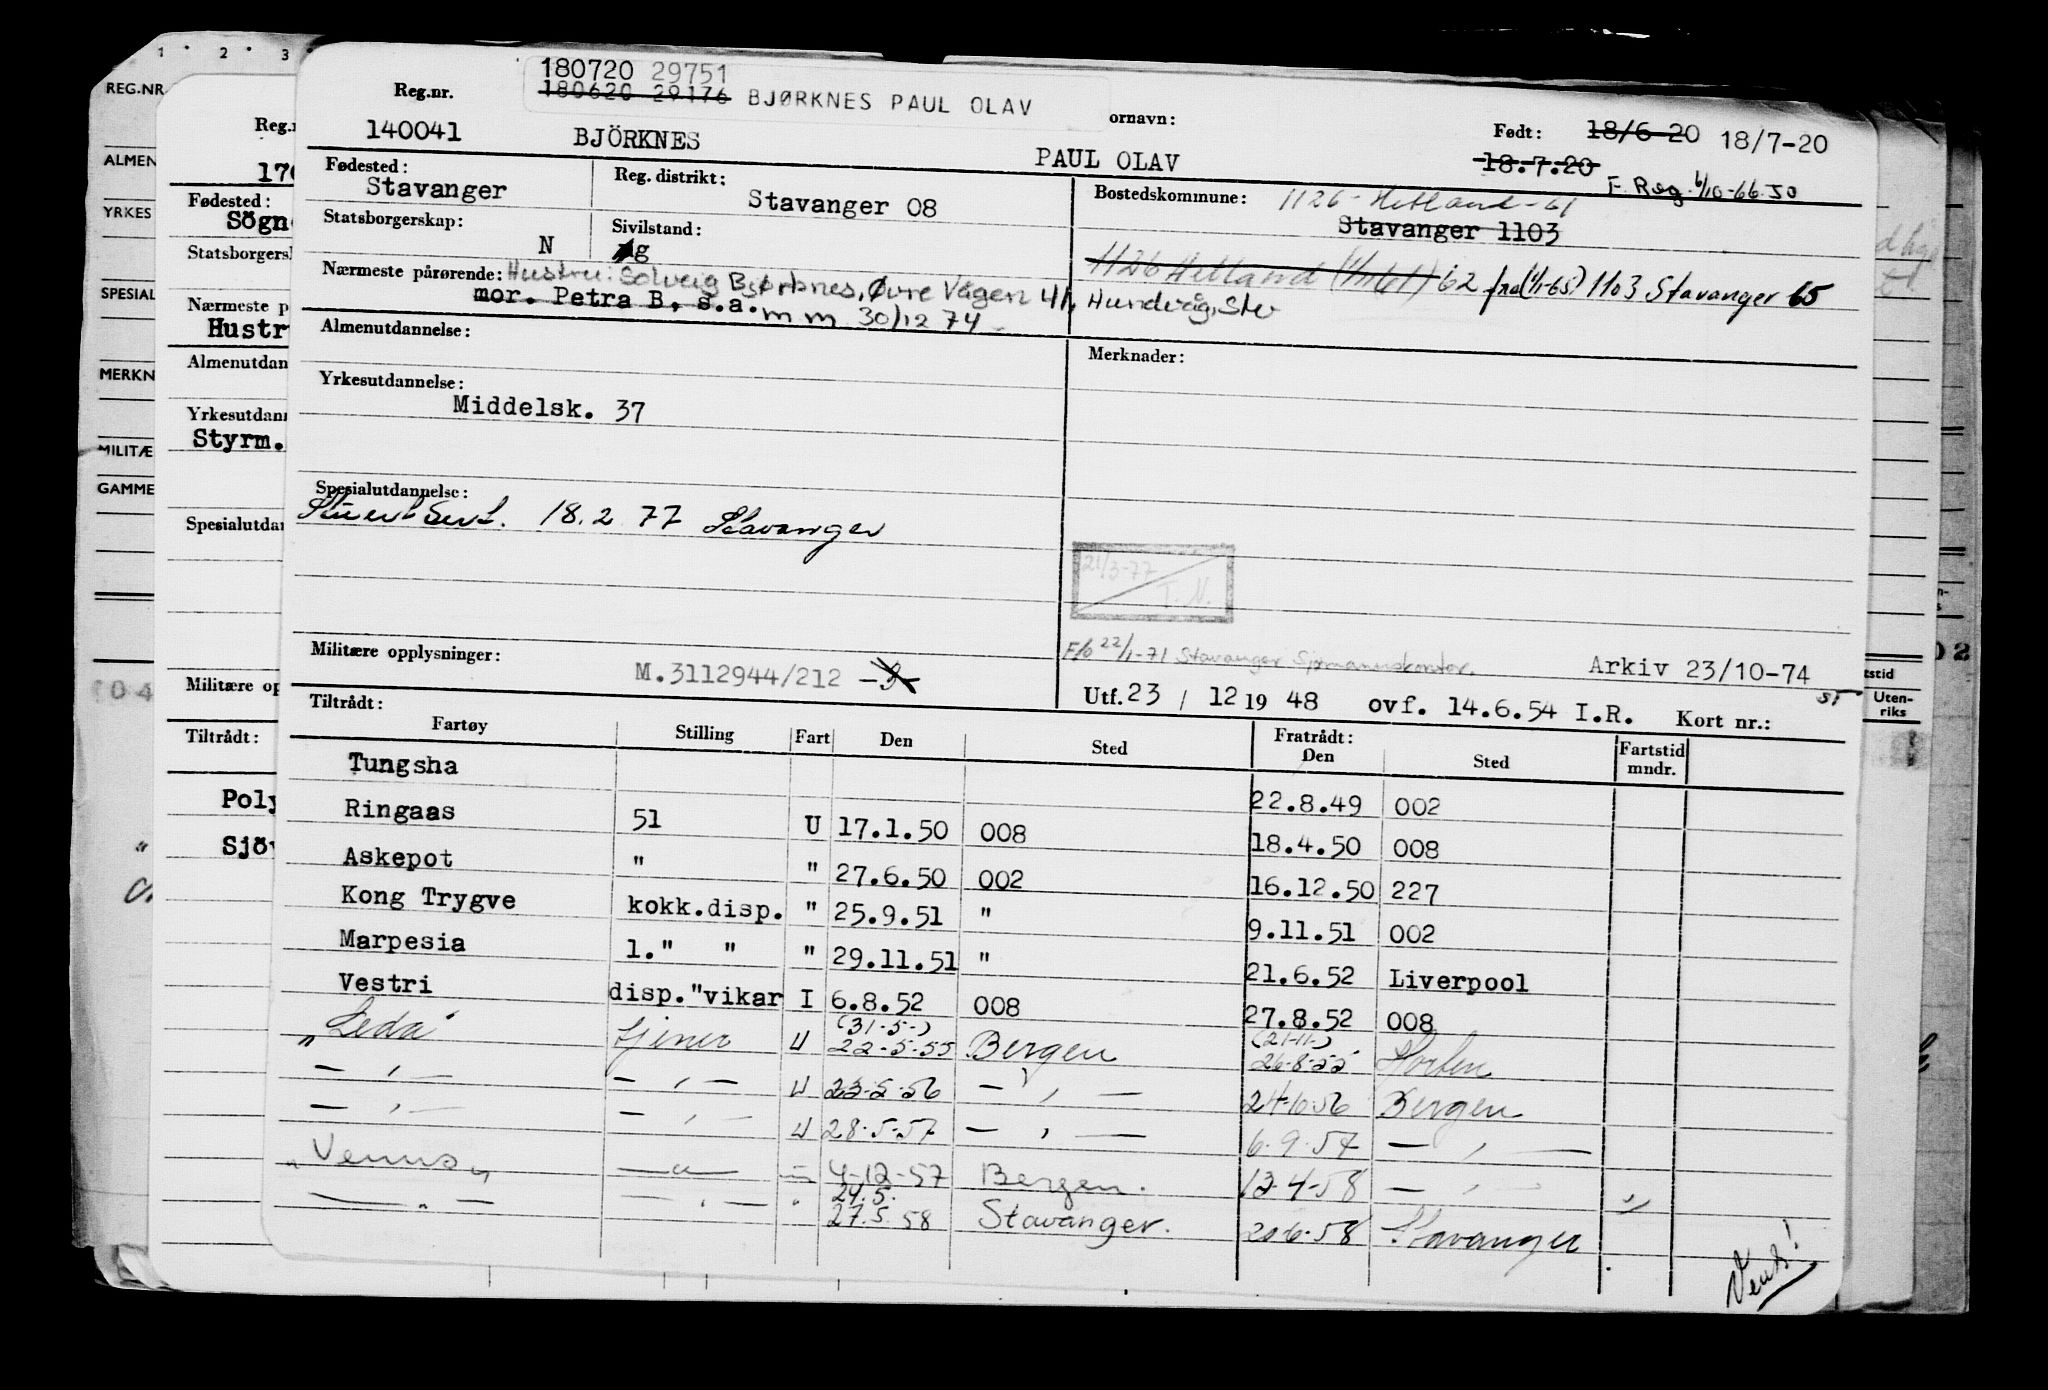 1 2 3
REG.NR
ALMEN
YRKES
SPESIAL
MERKN
MILITÆ
GAMME
Reg.n
170
Fødested:
Sögn
Statsborgersk
Nærmeste p
Hustr
Almenutdan
Yrkesutdann
Styrm.
Spesialutdan
Militære op
Tiltrådt:
Poly
Sjö
180720 29751
180620 29176 BJØRKNES PAUL OLAV
Reg.nr. ornavn: Født: 18/6-20 18/7-20
140041 BJÖRKNES PAUL OLAV 18.7.20
F. Reg. 6/10-66.SO
Fødested: Stavanger
Reg. distrikt: Stavanger 08
Bostedskommune: 1126-Hetland-61
Stavanger 1103
Statsborgerskap: N
Sivilstand: g
1126 Hetland (1/1 61) 62 fra (1/1-65) 1103 Stavanger 65
Nærmeste pårørende: Hustru: Solveig Bjørknes, Øvre Vågen 41, Hundvåg, Stv
mor. Petra B. s.a. m m 30/12 74
Almenutdannelse:
Merknader:
Yrkesutdannelse:
Middelsk. 37
Spesialutdannelse:
Stuert Sert. 18.2 77 Stavanger
21/3-77
T. N.
Militære opplysninger: M.3112944/212
F/o 22/1-71 Stavanger Sjømannskontor. Arkiv 23/10-74
Utf. 23 / 12 19 48 ovf. 14.6.54 I.R. Kort nr.:
Tiltrådt: Fratrådt:
Fartøy Stilling Fart Den Sted Den Sted Fartstid mndr.
Tungsha 22.8.49 002
Ringaas 51 U 17.1.50 008 18.4.50 008
Askepot " " 27.6.50 002 16.12.50 227
Kong Trygve kokk.disp. " 25.9.51 " 9.11.51 002
Marpesia 1." " " 29.11.51 " 21.6.52 Liverpool
Vestri disp."vikar I 6.8.52 008 27.8.52 008
(31-5-) (21-11-)
"Leda" tjener U 22-5-55 Bergen 26-8-55 Horten
— " — — " — U 23-5-56 — " — 24-10-56 Bergen
— " — — " — U 28-5-57 — " — 6-9-57 — " —
"Venus" — " — 4-12-57 Bergen. 13-4-58 — " —
24.5.
— " — — " — " 27.5.58 Stavanger. 20-6-58 Stavanger
Vend!
stid
Uten-
riks
02